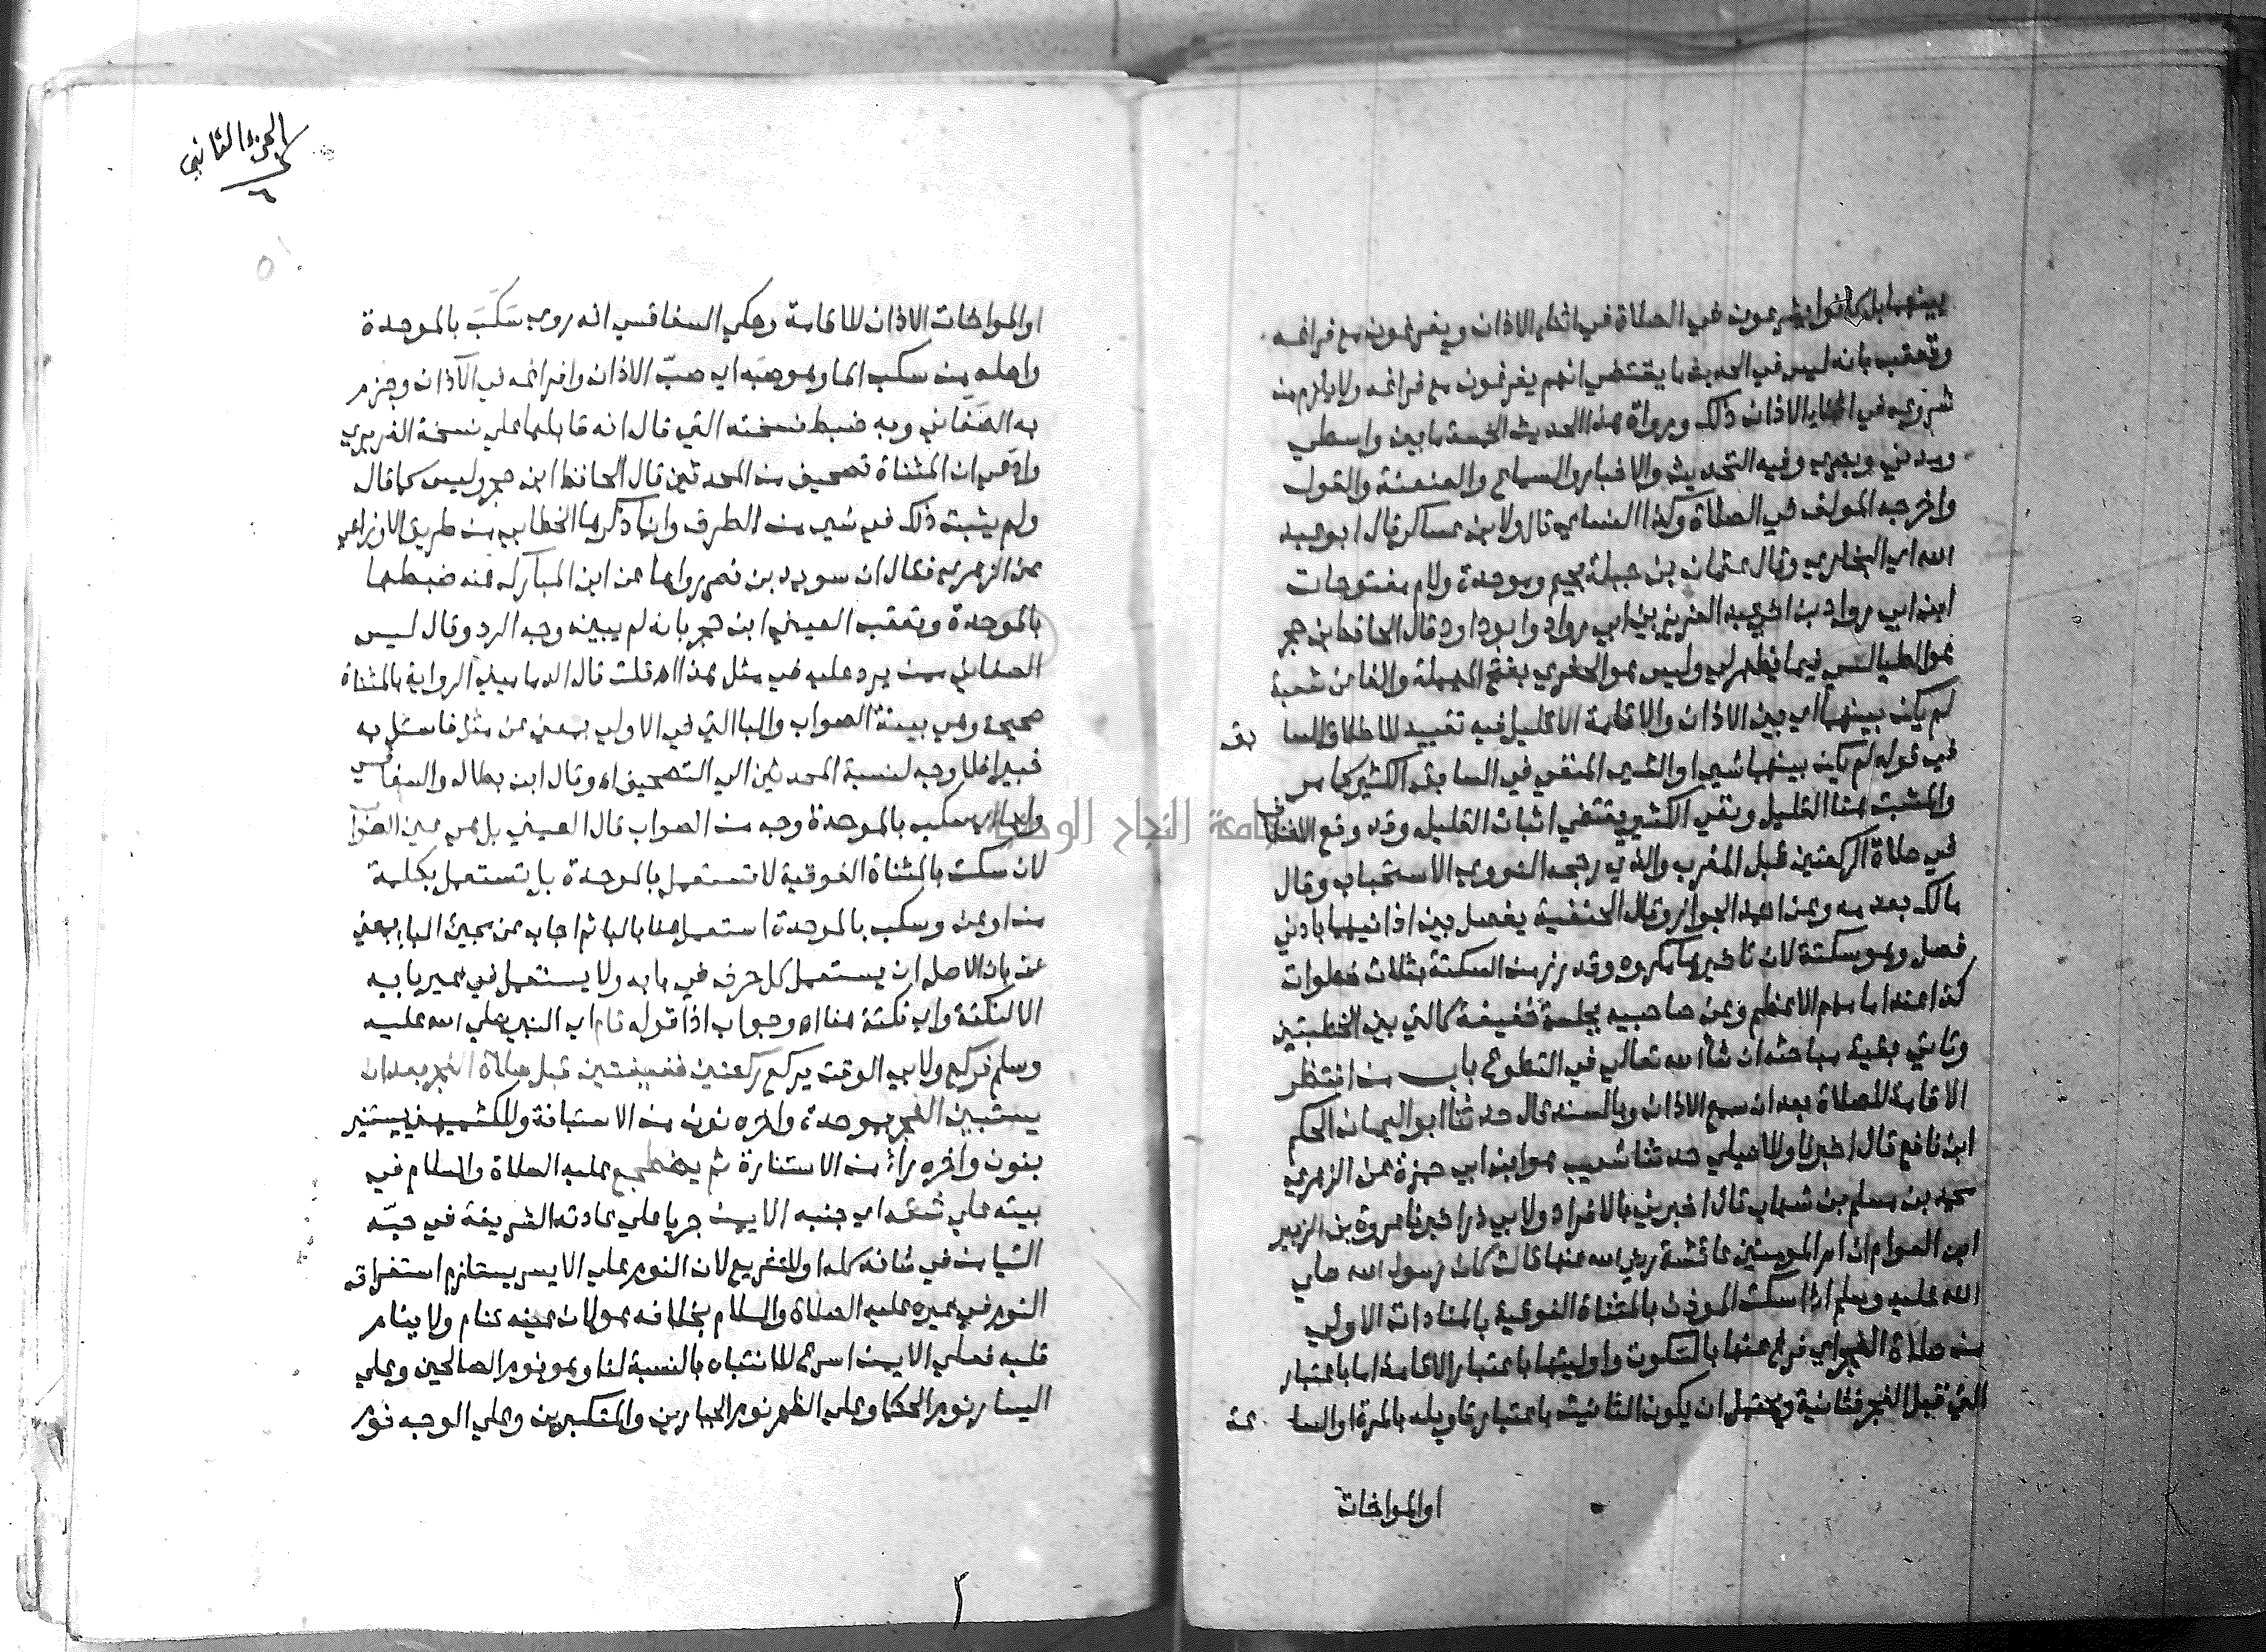 بينهما بل كانوا يشرعون في الصلاة في اثناء الاذان ويفرغون مع فراغه
وتعقب بانه ليس في الحديث ما يقتضي انهم يفرغون مع فراغه ولا يلزم من
شروعهم في اثناء الاذان ذلك ورواة هذا الحديث الخمسة ما بين واسطي
ومدني وبصري وفيه التحديث والاخبار والسماع والعنعنة والقول
واخرجه المولف في الصلاة وكذا النساي قال ولابن عساكر قال ابو عبد
الله اي البخاري وقال عثمان بن جبلة بجيم وموحدة ولام مفتوحات
ابن ابي رواد بن اخي عبد العزيز بن ابي رواد وابو داود قال الحافظ ابن حجر
هو الطيالسي فيما يظهر لي وليس هو الحفري بفتح المهملة والفا عن شعبة
لم يكن بينهما اي بين الاذان والاقامة الا قليل فيه تقييد للاطلاق السا بق
في قوله لم يكن بينهما شي او الشي المنفي في السابق الكثير كما مر
والمثبت هنا القليل ونفي الكثير يقتضي اثبات القليل وقد وقع الاختلاف
في صلاة الركعتين قبل المغرب والذي رجحه النووي الاستحباب وقال
مالك بعدمه وعن احمد الجواز وقال الحنفية يفصل بين اذانيهما بادني
فصل وهو سكتة لان تاخيرها مكروه وقدر زمن السكتة بثلاث خطوات
كذا عند امامهم الاعظم وعن صاحبيه بجلسة خفيفة كالتي بين الخطبتين
وتاتي بقية مباحثه ان شا الله تعالي في التطوع باب من انتظر
الاقامة للصلاة بعد ان سمع الاذان وبالسند قال حدثنا ابو اليمان الحكم
ابن نافع قال اخبرنا وللاصيلي حدثنا شعيب هو ابن ابي حمزة عن الزهري
محمد بن مسلم بن شهاب قال اخبرني بالافراد ولابي ذر اخبرنا عروة بن الزبير
ابن العوام ان ام المومنين عائشة رضي الله عنها قالت كان رسول الله صلي
الله عليه وسلم اذا سكت الموذن بالمثناة الفوقية بالمناداة الاولي
من صلاة الفجر اي فرغ عنها بالسكوت واوليتها باعتبار الاقامة اما باعتبار
التي قبل الفجر فثانية ويحتمل ان يكون التانيث باعتبار تاويله بالمرة او السا عة
او المواخات
الجزء الثاني
٦
او المواخات الاذان للاقامة وحكي السفاقسي انه روي سَكَبَ بالموحدة
واصله من سكب الما وهو صبه اي صبّ الاذان وافراغه في الآذان وجزم
به الصغاني وبه ضبط نسخته التي قال انه قابلها علي نسخة الفربري
وادعي ان المثناة تصحيف من المحدثين قال الحافظ ابن حجر وليس كما قال
ولم يثبت ذلك في شي من الطرق وانما ذكرها الخطابي من طريق الاوزاعي
عن الزهري وقال ان سويد بن نصر رواها عن ابن المبارك عنه ضبطها
بالموحدة وتعقب العيني ابن حجر بانه لم يبين وجه الرد وقال ليس
الصغاني ممن يرد عليه في مثل هذا اه قلت قال الدماميني الرواية بالمثناة
صحيحة وهي بينة الصواب والبا التي في الاولي بمعني عن مثل فاسئل به
خبيرا فلا وجه لنسبة المحدثين الي التصحيف اه وقال ابن بطال والسفاقسي
ولها اي سكب بالموحدة وجه من الصواب قال العيني بل هي عين الصواب
لان سكت بالمثناة الفوقية لا تستعمل بالموحدة بل تستعمل بكلمة
من او عن وسكب بالموحدة استعمل هنا بالبا ثم اجاب عن مجئ البا بمعني
عن بان الاصل ان يستعمل كل حرف في بابه ولا يستعمل في غير بابه
الا لنكتة واي نكتة هنا اه وجواب اذا قوله قام اي النبي صلي الله عليه
وسلم فركع ولابي الوقت يركع ركعتين خفيفتين قبل صلاة الفجر بعد ان
يستبين الفجر بموحدة واخره نون من الاستبانة وللكشميهني يستنير
بنون واخره راء من الاستنارة ثم يضطجع عليه الصلاة والسلام في
بيته علي شقه اي جنبه الايمن جريا علي عادته الشريفة في حبّه
التيامن في شانه كله او للتشريع لان النوم علي الايسر يستلزم استغراق
النوم في غيره عليه الصلاة والسلام بخلافه هو لان عينه تنام ولا ينام
قلبه فعلي الايمن اسرع للانتباه بالنسبة لنا وهو نوم الصالحين وعلي
اليسار نوم الحكما وعلي الظهر نوم الجبارين والمتكبرين وعلي الوجه نوم
جامعة النجاح الوطنية